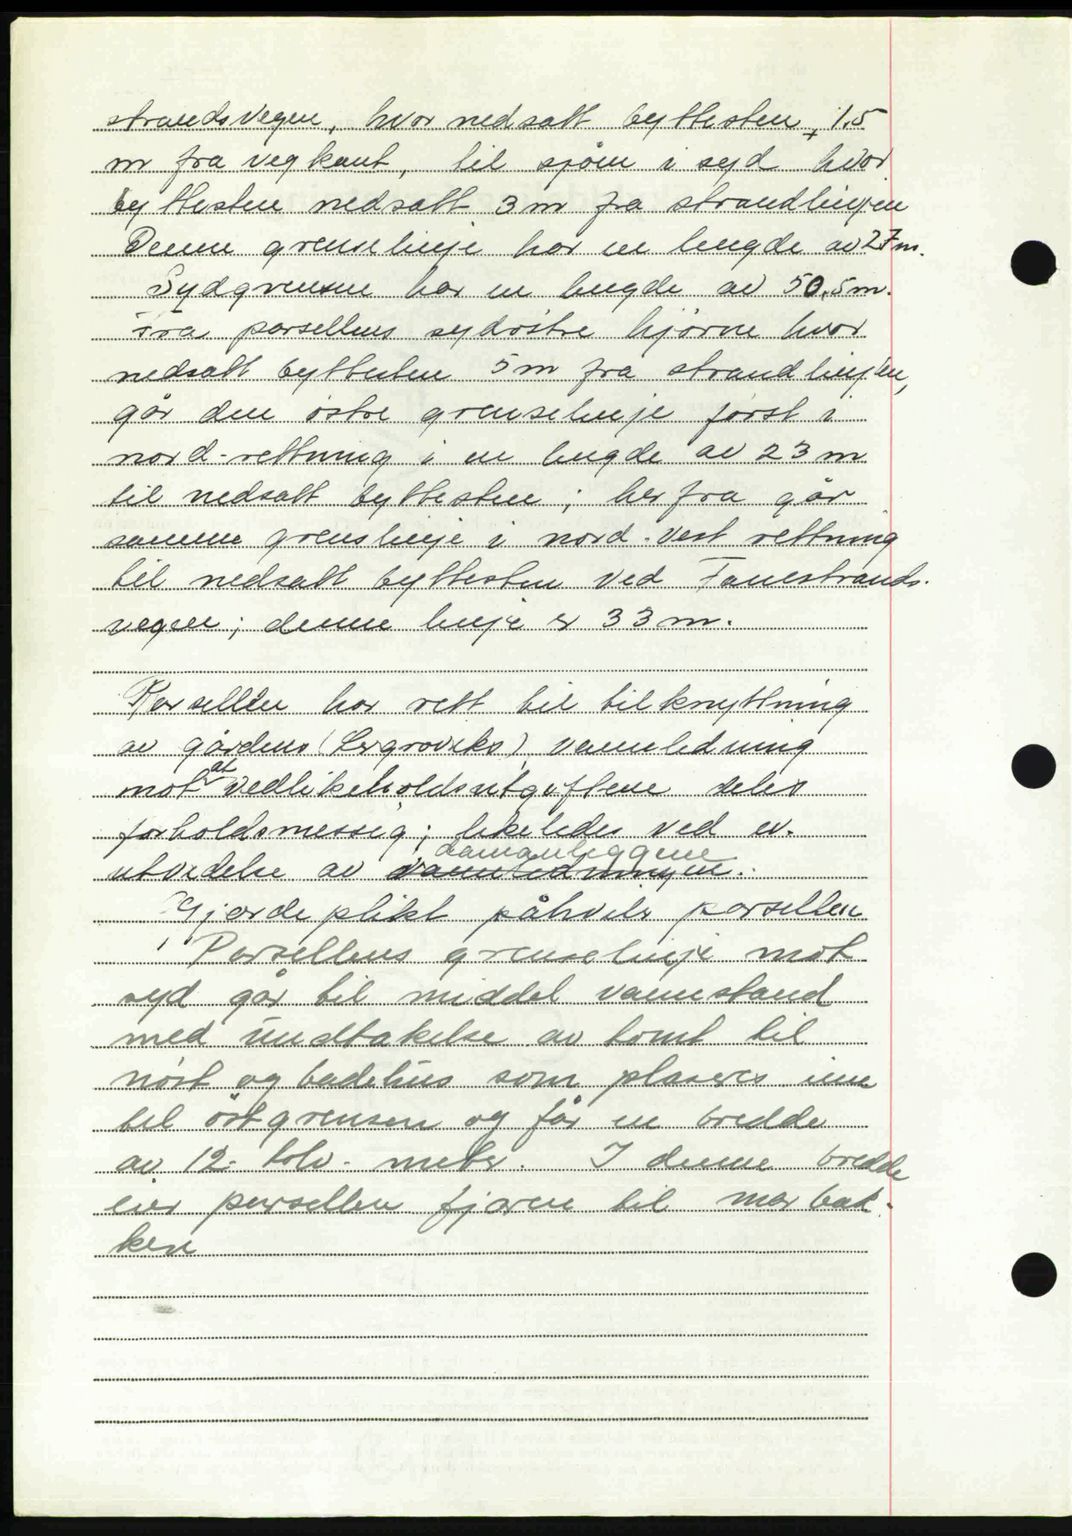 strandsvegen, hvor nedsatt byttesten + 1.5
m fra vegkant, til sjøen i syd hvor
byttesten nedsatt 3 m fra strandlinjen
Denne grenselinje har en lengde av 27 m.
Sydgrensen har en lengde av 50,5 m.
Fra parsellens sydöstre hjörne hvor
nedsatt byttesten 5 m fra strandlinjen,
går den östre grenselinje först i
nord-rettning i en lengde av 23 m
til nedsatt byttesten; herfra går
samme grenslinje i nord-vest rettning
til nedsatt byttesten ved Fanestrands-
vegen; denne linje er 33 m.
Parsellen har rett til tilknyttning
av gårdens (Lergroviks) vannledning
mot at vedlikeholdsutgiftene deles
forholdsmessig; likeledes ved ev.
utvidelse av vannledningen damanleggene.
Gjerdeplikt påhviler parsellen
Parsellens grenselinje mot
syd går til middel vannstand
med undtakelse av tomt til
nöst og badehus som plaseres inn
til östgrensen og får en bredde
av 12 - tolv - meter. I denne bredde
eier parsellen fjæren til marbak-
ken